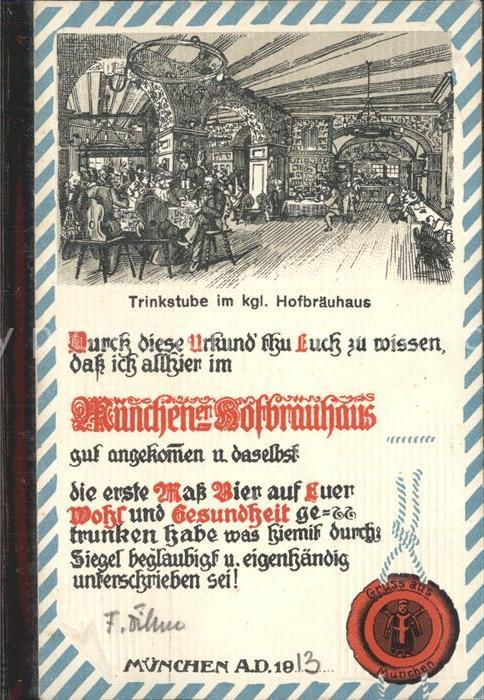 Trinkstube im kgl. Hofbräuhaus
Durch diese Urkund' thu Euch zu wissen,
daß ich allhier im
Münchener Hofbräuhaus
gut angekom̄en u. daselbst
die erste Maß Bier auf Euer
Wohl und Gesundheit ge=
trunken habe was hiemit durch
Siegel beglaubigt u. eigenhändig
unterschrieben sei!
MÜNCHEN A.D. 1913
Gruss aus
München